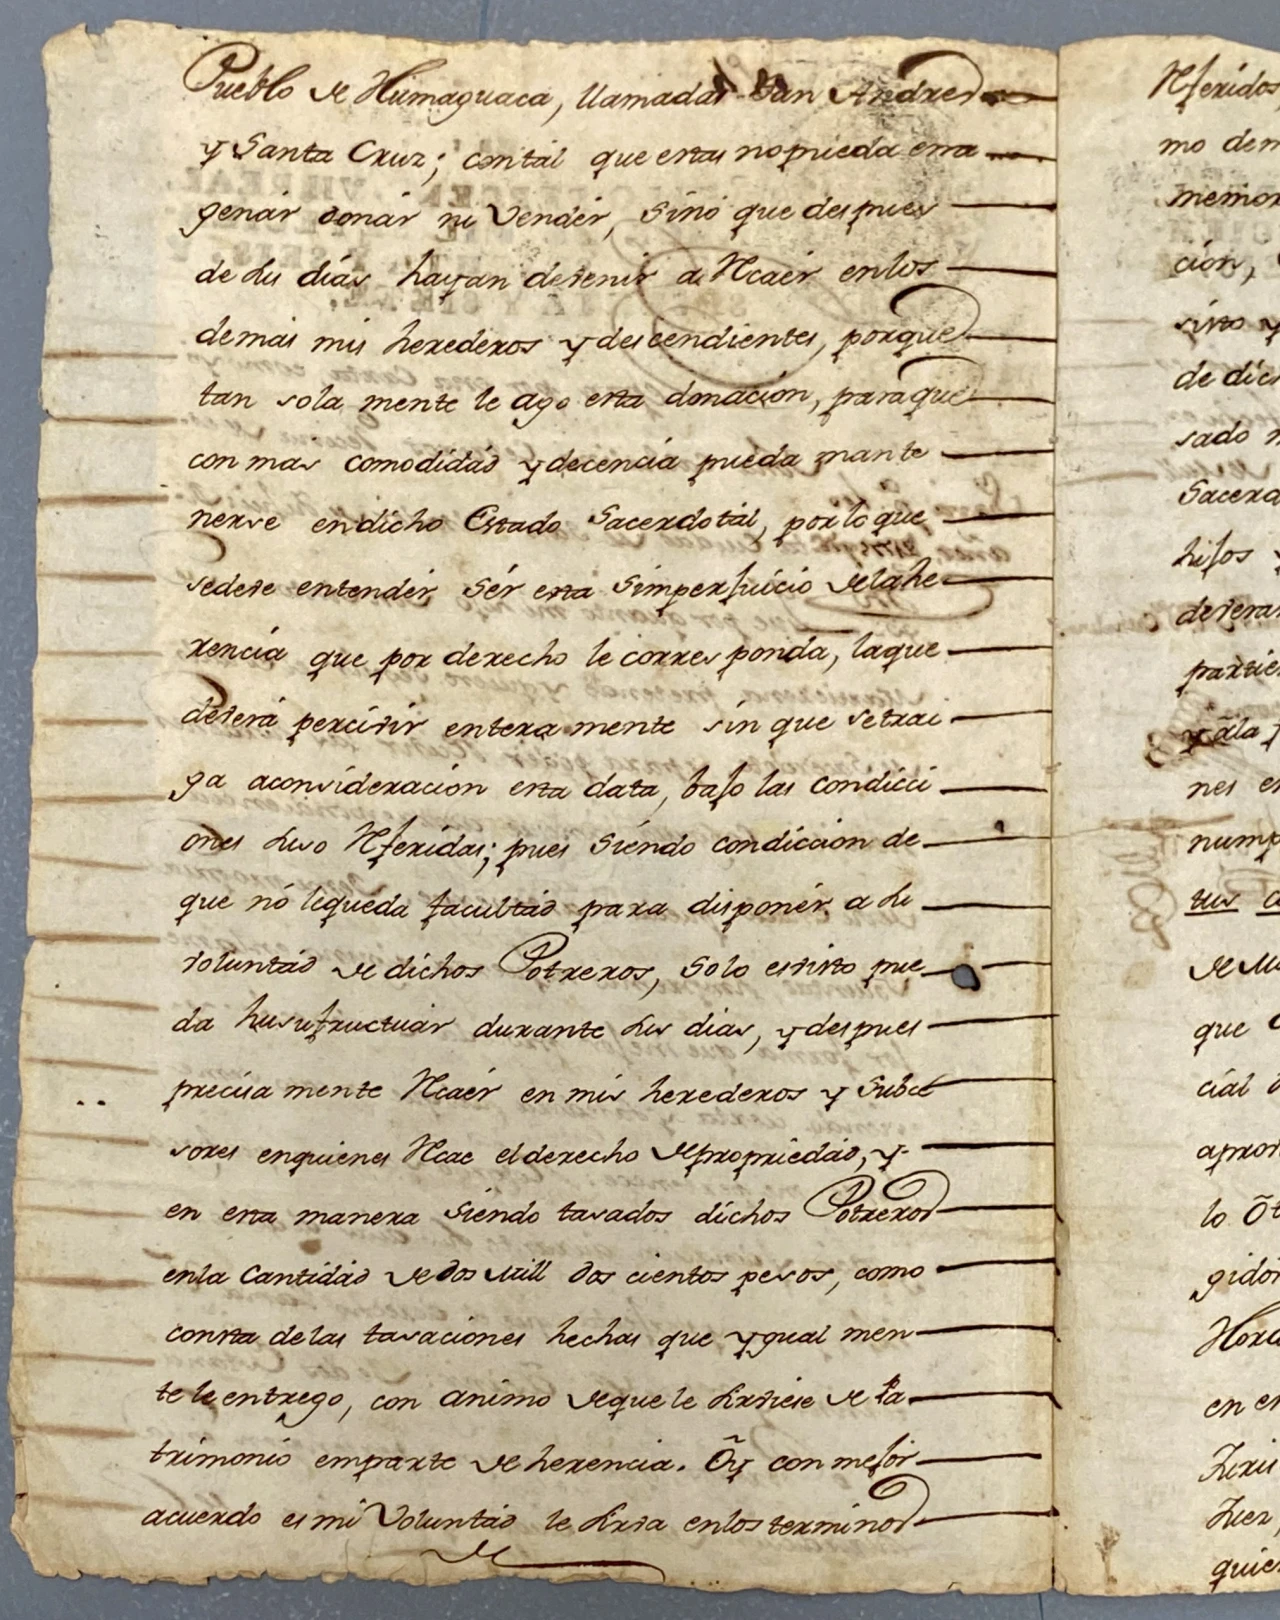 Pueblo de Humaguaca, llamadas San Andres
y Santa Cruz; con tál que estas no pueda ena
genár donár ni Vendér, sinó que despues
de sus días hayan de venir a Recaér en los
demás mis herederos y descendientes, porque
tan sola mente le ago esta donación, para que
con mas comodidád y decencia pueda mante
nerse en dicho Estado Sacerdotál, por lo que
se deve entendér sér esta simperjuicio de la he
rencia que por derecho le corresponda, la que
deverá percivír entera mente sín que se trai
ga a consideracion esta data, bajo las condicci
ones suso Referidas; pues siendo condiccion de
que nó le queda facultád para disponér a su
voluntád de dichos Potreros, solo esvisto pue
da husufructuár durante sus dias, y despues
precisa mente Recaér en mis herederos y Subce
sores en quienes Recae el derecho de propriedád, y
en esta manera siendo tasados dichos Potreros
en la Cantidád de dos Mill dos cientos pesos, como
consta de las tasaciones hechas que ygual men
te le entrego, con animo de que le sirviese de Pa
trimonio emparte de herencia. Õy con mejór
acuerdo es mi Voluntád le sirva en los terminos
de
Referidos,
mo dem
memor
ción,
sisto y
de dich
sado m
Sacerd
hijos y
deveran
partie
y ála p
nes en
nump
tus c
de Mi
que
cial
apron
lo Õt
gidor
en es
Juez,
quie